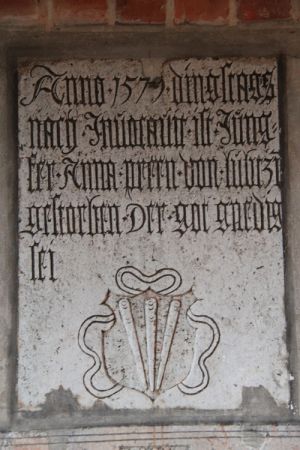 Anno · 1579 dingstags
nach Inuocauit ist Jung
fer Anna · preen · von
gestorben · Der got gnedig
sei